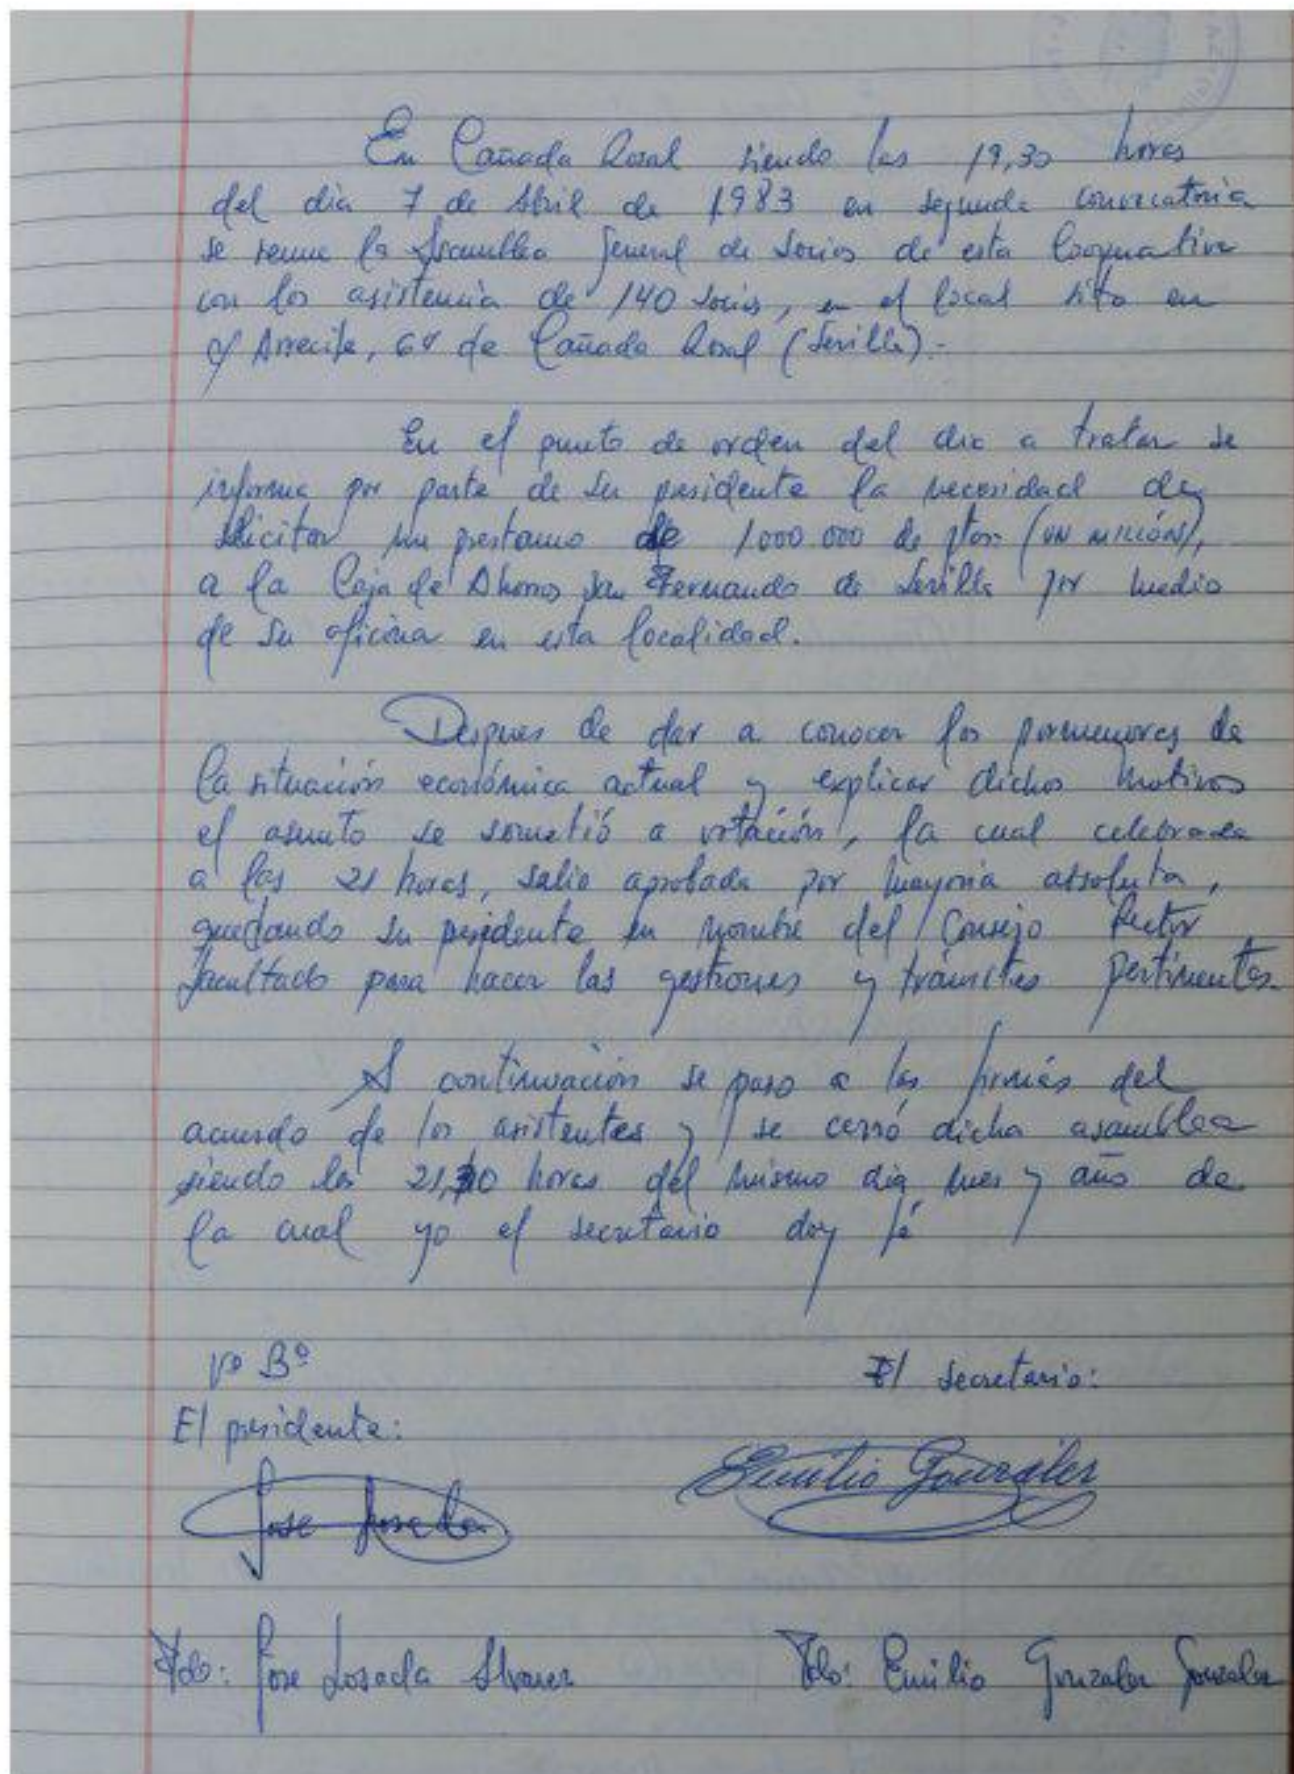 En Cañada Rosal siendo las 19,30 horas
del dia 7 de Abril de 1983 en segunda convocatoria
se reune la Asamblea General de Socios de esta Cooperativa
con los asistencia de 140 socios, en el local sito en
c/ Arrecife, de Cañada Rosal (Sevilla).-
En el punto de orden del dia a tratar se
informa por parte de su presidente la necesidad de
solicitar un prestamo de 1.000.000 de ptas (UN MILLÓN),
a la Caja de Ahorros San Fernando de Sevilla por medio
de su oficina en esta localidad.
Despues de dar a conocer los pormenores de
la situación económica actual y explicar dichos motivos
el asunto se sometió a votación, la cual celebrada
a las 21 horas, salio aprobada por mayoria absoluta,
quedando su presidente en nombre del Consejo Rector
facultado para hacer las gestiones y trámites pertinentes.
A continuación se paso a las firmas del
acuerdo de los asistentes y se cerró dicha asamblea
siendo las horas del mismo dia, mes y año de
la cual yo el secretario doy fé
Vº Bº
El secretario:
El presidente:
Emilio González
Jose Losada
Fdo: Jose Losada Alvarez
Fdo: Emilio Gonzalez Gonzalez